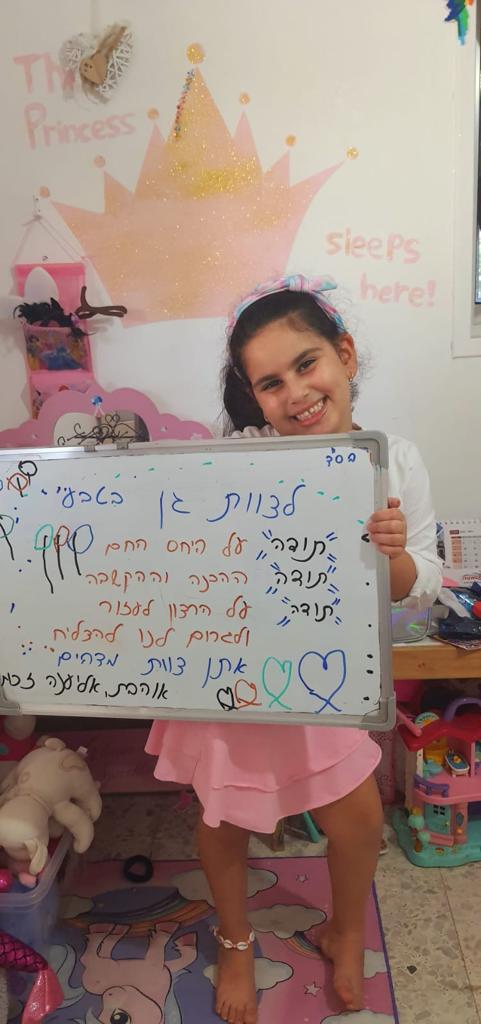 The
Princess
sleeps
here!
בס"ד
לצוות גן בטבעי
תודה על היחס החם
תודה ההבנה וההקשבה
תודה על הרצון לעזור
ולגרום לנו להצליח
אתן צוות מדהים
אוהבת, אליענה